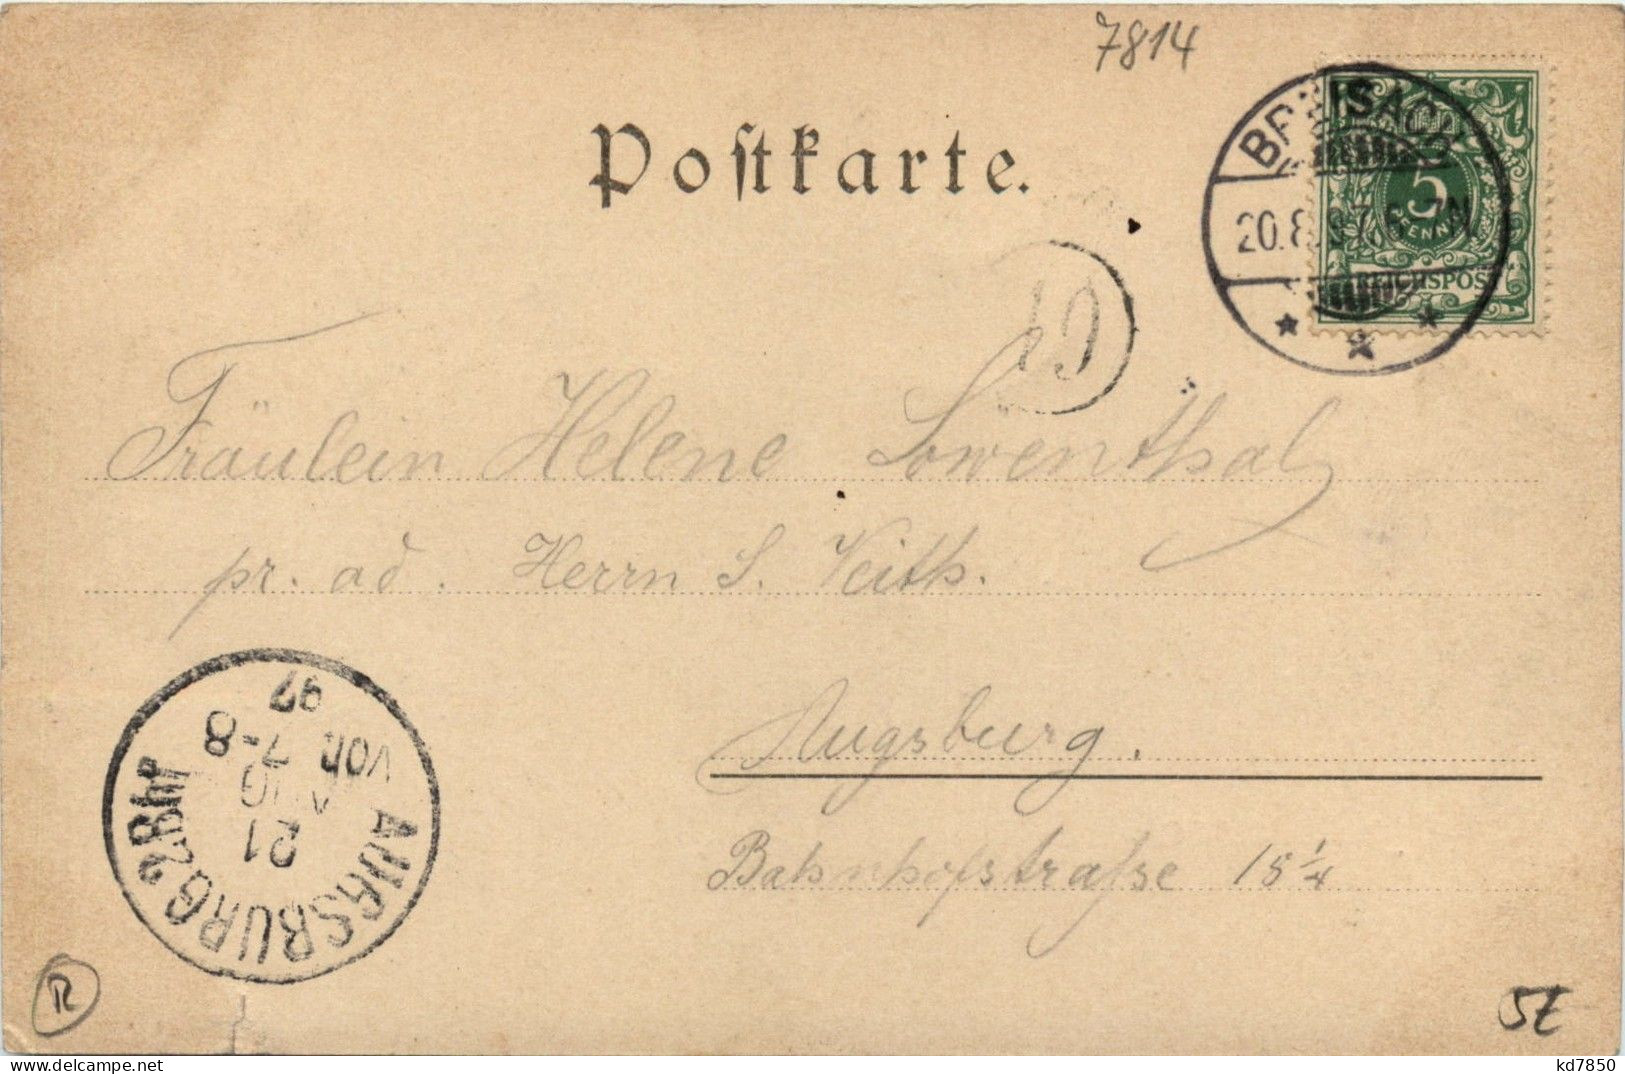 7814
Postkarte.
BREISACH
20.8.97.6-7N
5
PFENNIG
REICHSPOST
Fräulein Helene Löwenthal
pr. ad. Herrn S. Veith.
Augsburg.
Bahnhofstraße 15 1/4
AUGSBURG 2.Bhf
21
AUG
VOR. 7-8
97
R
kd7850